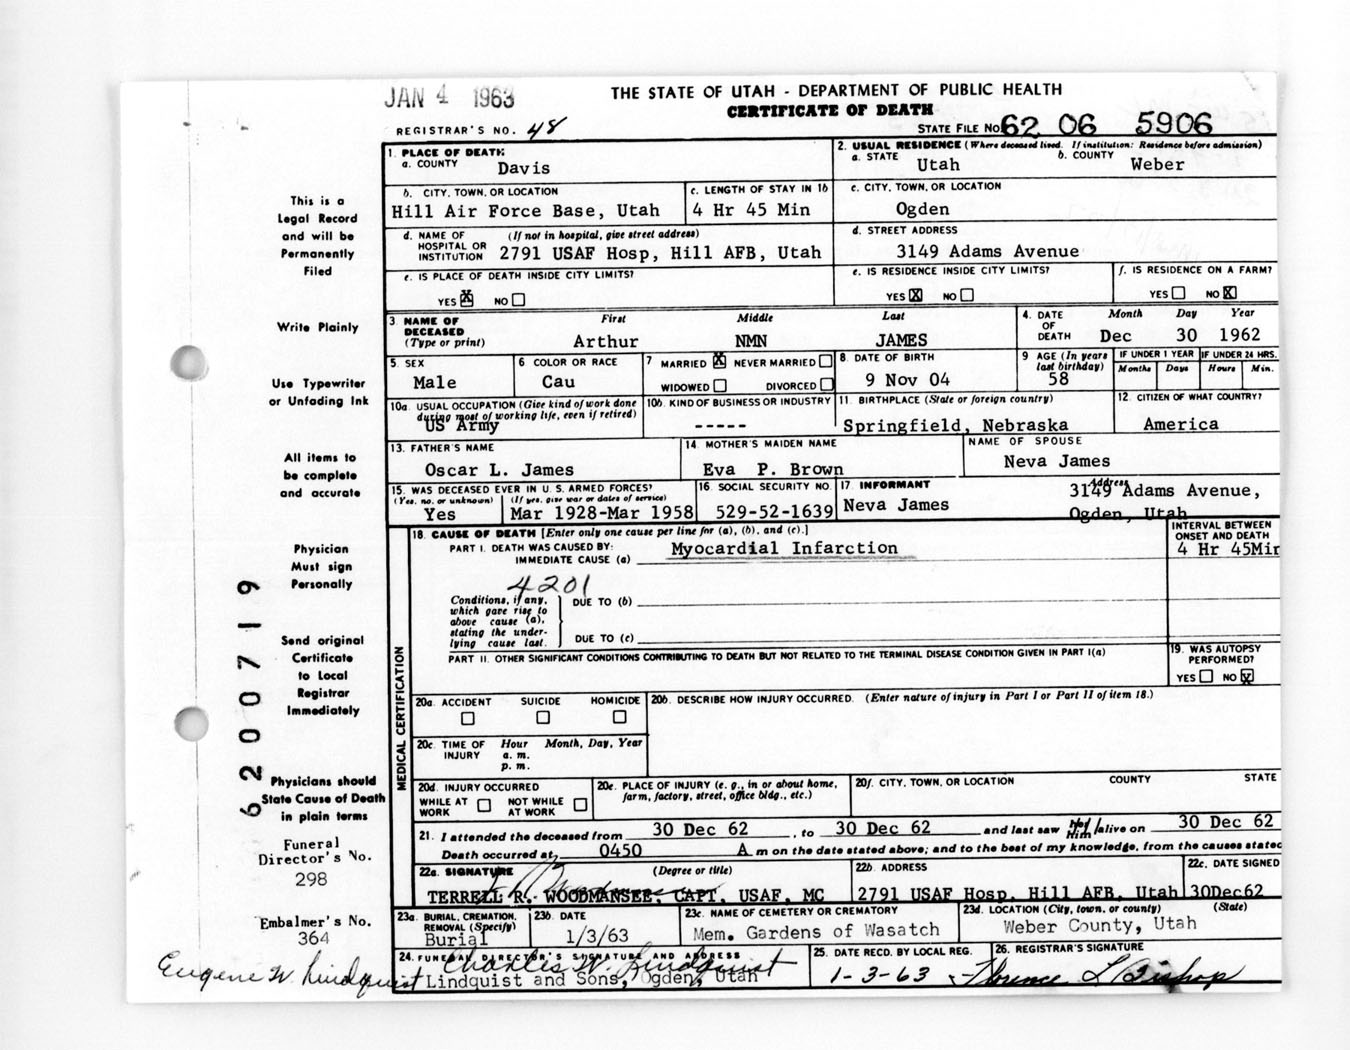 JAN 4 1963
THE STATE OF UTAH - DEPARTMENT OF PUBLIC HEALTH
CERTIFICATE OF DEATH
REGISTRAR'S NO. 48
STATE FILE NO. 62 06 5906
1. PLACE OF DEATH
a. COUNTY Davis
2. USUAL RESIDENCE (Where deceased lived. If institution: Residence before admission)
a. STATE Utah b. COUNTY Weber
b. CITY, TOWN, OR LOCATION
Hill Air Force Base, Utah
c. LENGTH OF STAY IN 1b
4 Hr 45 Min
c. CITY, TOWN, OR LOCATION
Ogden
d. NAME OF HOSPITAL OR INSTITUTION (If not in hospital, give street address)
2791 USAF Hosp, Hill AFB, Utah
d. STREET ADDRESS
3149 Adams Avenue
e. IS PLACE OF DEATH INSIDE CITY LIMITS?
YES X NO
e. IS RESIDENCE INSIDE CITY LIMITS?
YES X NO
f. IS RESIDENCE ON A FARM?
YES NO X
3. NAME OF DECEASED (Type or print)
First Middle Last
Arthur NMN JAMES
4. DATE OF DEATH Month Day Year
Dec 30 1962
5. SEX
Male
6 COLOR OR RACE
Cau
7 MARRIED X NEVER MARRIED
WIDOWED DIVORCED
8. DATE OF BIRTH
9 Nov 04
9 AGE (In years last birthday)
58
IF UNDER 1 YEAR IF UNDER 24 HRS.
Months Days Hours Min.
10a. USUAL OCCUPATION (Give kind of work done during most of working life, even if retired)
US Army
10b. KIND OF BUSINESS OR INDUSTRY
-----
11. BIRTHPLACE (State or foreign country)
Springfield, Nebraska
12. CITIZEN OF WHAT COUNTRY?
America
13. FATHER'S NAME
Oscar L. James
14. MOTHER'S MAIDEN NAME
Eva P. Brown
NAME OF SPOUSE
Neva James
15. WAS DECEASED EVER IN U. S. ARMED FORCES?
(Yes, no, or unknown) (If yes, give war or dates of service)
Yes Mar 1928-Mar 1958
16. SOCIAL SECURITY NO.
529-52-1639
17. INFORMANT Address
Neva James 3149 Adams Avenue,
Ogden, Utah
MEDICAL CERTIFICATION
18. CAUSE OF DEATH [Enter only one cause per line for (a), (b), and (c).]
INTERVAL BETWEEN ONSET AND DEATH
PART I. DEATH WAS CAUSED BY:
IMMEDIATE CAUSE (a) Myocardial Infarction
4 Hr 45Min
4201
Conditions, if any, which gave rise to above cause (a), stating the underlying cause last.
DUE TO (b)
DUE TO (c)
PART II. OTHER SIGNIFICANT CONDITIONS CONTRIBUTING TO DEATH BUT NOT RELATED TO THE TERMINAL DISEASE CONDITION GIVEN IN PART I(a)
19. WAS AUTOPSY PERFORMED?
YES NO X
20a. ACCIDENT SUICIDE HOMICIDE
20b. DESCRIBE HOW INJURY OCCURRED. (Enter nature of injury in Part I or Part II of item 18.)
20c. TIME OF INJURY Hour Month, Day, Year
a. m.
p. m.
20d. INJURY OCCURRED
WHILE AT WORK NOT WHILE AT WORK
20e. PLACE OF INJURY (e. g., in or about home, farm, factory, street, office bldg., etc.)
20f. CITY, TOWN, OR LOCATION COUNTY STATE
21. I attended the deceased from 30 Dec 62, to 30 Dec 62 and last saw him alive on 30 Dec 62
Death occurred at 0450 A m on the date stated above; and to the best of my knowledge, from the causes stated
22a. SIGNATURE (Degree or title)
TERRELL R. WOODMANSEE, CAPT, USAF, MC
22b. ADDRESS
2791 USAF Hosp, Hill AFB, Utah
22c. DATE SIGNED
30Dec62
23a. BURIAL, CREMATION, REMOVAL (Specify)
Burial
23b. DATE
1/3/63
23c. NAME OF CEMETERY OR CREMATORY
Mem. Gardens of Wasatch
23d. LOCATION (City, town, or county) (State)
Weber County, Utah
24. FUNERAL DIRECTOR'S SIGNATURE AND ADDRESS
Charles W. Lindquist
Lindquist and Sons, Ogden, Utah
25. DATE RECD. BY LOCAL REG.
1-3-63
26. REGISTRAR'S SIGNATURE
Florence L Bishop
This is a
Legal Record
and will be
Permanently
Filed
Write Plainly
Use Typewriter
or Unfading Ink
All items to
be complete
and accurate
Physician
Must sign
Personally
Send original
Certificate
to Local
Registrar
Immediately
Physicians should
State Cause of Death
in plain terms
Funeral
Director's No.
298
Embalmer's No.
364
Eugene W. Lindquist
62 00719